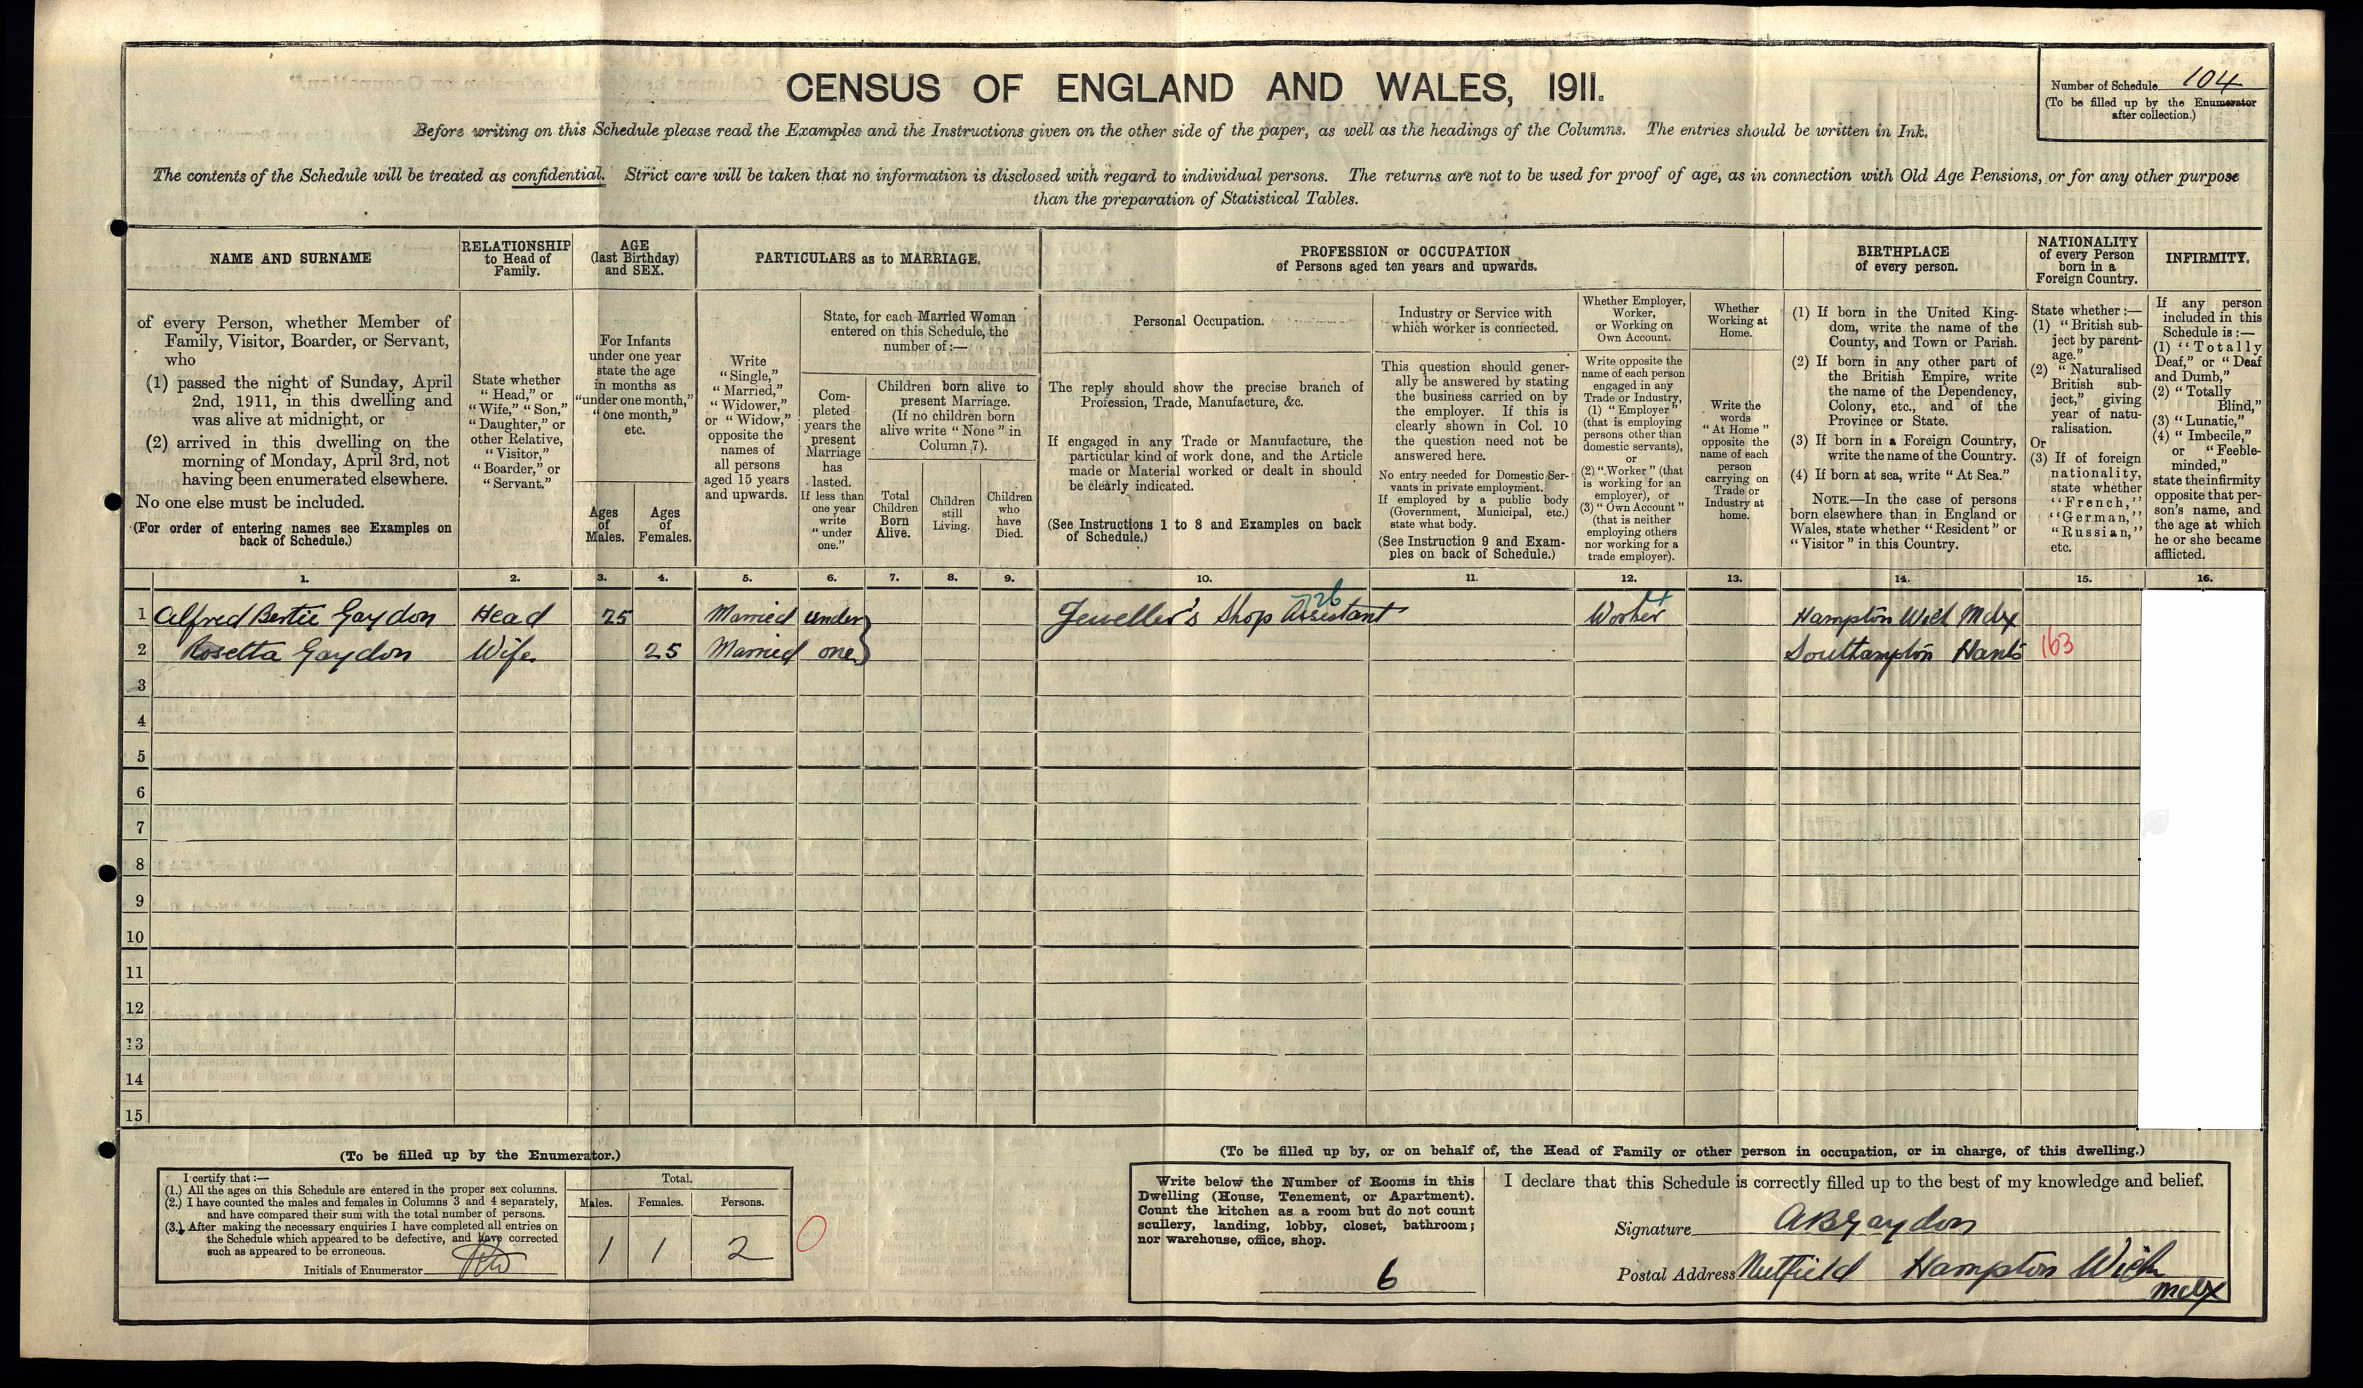 CENSUS OF ENGLAND AND WALES, 1911.
Number of Schedule 104
(To be filled up by the Enumerator
after collection.)
Before writing on this Schedule please read the Examples and the Instructions given on the other side of the paper, as well as the headings of the Columns. The entries should be written in Ink.
The contents of the Schedule will be treated as confidential. Strict care will be taken that no information is disclosed with regard to individual persons. The returns are not to be used for proof of age, as in connection with Old Age Pensions, or for any other purpose
than the preparation of Statistical Tables.
NAME AND SURNAME
of every Person, whether Member of
Family, Visitor, Boarder, or Servant,
who
(1) passed the night of Sunday, April
2nd, 1911, in this dwelling and
was alive at midnight, or
(2) arrived in this dwelling on the
morning of Monday, April 3rd, not
having been enumerated elsewhere.
No one else must be included.
(For order of entering names see Examples on
back of Schedule.)
RELATIONSHIP
to Head of
Family.
State whether
"Head," or
"Wife," "Son,"
"Daughter," or
other Relative,
"Visitor,"
"Boarder," or
"Servant."
AGE
(last Birthday)
and SEX.
For Infants
under one year
state the age
in months as
"under one month,"
"one month,"
etc.
Ages
of
Males.
Ages
of
Females.
PARTICULARS as to MARRIAGE.
Write
"Single,"
"Married,"
"Widower,"
or "Widow,"
opposite the
names of
all persons
aged 15 years
and upwards.
State, for each Married Woman
entered on this Schedule, the
number of:—
Com-
pleted
years the
present
Marriage
has
lasted.
If less than
one year
write
"under
one."
Children born alive to
present Marriage.
(If no children born
alive write "None" in
Column 7).
Total
Children
Born
Alive.
Children
still
Living.
Children
who
have
Died.
PROFESSION or OCCUPATION
of Persons aged ten years and upwards.
Personal Occupation.
The reply should show the precise branch of
Profession, Trade, Manufacture, &c.
If engaged in any Trade or Manufacture, the
particular kind of work done, and the Article
made or Material worked or dealt in should
be clearly indicated.
(See Instructions 1 to 8 and Examples on back
of Schedule.)
Industry or Service with
which worker is connected.
This question should gener-
ally be answered by stating
the business carried on by
the employer. If this is
clearly shown in Col. 10
the question need not be
answered here.
No entry needed for Domestic Ser-
vants in private employment.
If employed by a public body
(Government, Municipal, etc.)
state what body.
(See Instruction 9 and Exam-
ples on back of Schedule.)
Whether Employer,
Worker,
or Working on
Own Account.
Write opposite the
name of each person
engaged in any
Trade or Industry,
(1) "Employer"
(that is employing
persons other than
domestic servants),
or
(2) "Worker" (that
is working for an
employer), or
(3) "Own Account"
(that is neither
employing others
nor working for a
trade employer).
Whether
Working at
Home.
Write the
words
"At Home"
opposite the
name of each
person
carrying on
Trade or
Industry at
home.
BIRTHPLACE
of every person.
(1) If born in the United King-
dom, write the name of the
County, and Town or Parish.
(2) If born in any other part of
the British Empire, write
the name of the Dependency,
Colony, etc., and of the
Province or State.
(3) If born in a Foreign Country,
write the name of the Country.
(4) If born at sea, write "At Sea."
NOTE.—In the case of persons
born elsewhere than in England or
Wales, state whether "Resident" or
"Visitor" in this Country.
NATIONALITY
of every Person
born in a
Foreign Country.
State whether:—
(1) "British sub-
ject by parent-
age."
(2) "Naturalised
British sub-
ject," giving
year of natu-
ralisation.
Or
(3) If of foreign
nationality,
state whether
"French,"
"German,"
"Russian,"
etc.
INFIRMITY.
If any person
included in this
Schedule is:—
(1) "Totally
Deaf," or "Deaf
and Dumb,"
(2) "Totally
Blind,"
(3) "Lunatic,"
(4) "Imbecile,"
or "Feeble-
minded,"
state the infirmity
opposite that per-
son's name, and
the age at which
he or she became
afflicted.
1. 2. 3. 4. 5. 6. 7. 8. 9. 10. 11. 12. 13. 14. 15. 16.
1 Alfred Bertie Gaydon Head 25 Married under Jeweller's Shop Assistant Worker Hampton Wick Mdx
2 Rosetta Gaydon Wife 25 Married one Southampton Hants 163
3
4
5
6
7
8
9
10
11
12
13
14
15
(To be filled up by the Enumerator.)
I certify that:—
(1.) All the ages on this Schedule are entered in the proper sex columns.
(2.) I have counted the males and females in Columns 3 and 4 separately,
and have compared their sum with the total number of persons.
(3.) After making the necessary enquiries I have completed all entries on
the Schedule which appeared to be defective, and have corrected
such as appeared to be erroneous.
Initials of Enumerator
Total.
Males. Females. Persons.
1 1 2
0
(To be filled up by, or on behalf of, the Head of Family or other person in occupation, or in charge, of this dwelling.)
Write below the Number of Rooms in this
Dwelling (House, Tenement, or Apartment).
Count the kitchen as a room but do not count
scullery, landing, lobby, closet, bathroom;
nor warehouse, office, shop.
6
I declare that this Schedule is correctly filled up to the best of my knowledge and belief.
Signature A B Gaydon
Postal Address Nutfield Hampton Wick
Mdx